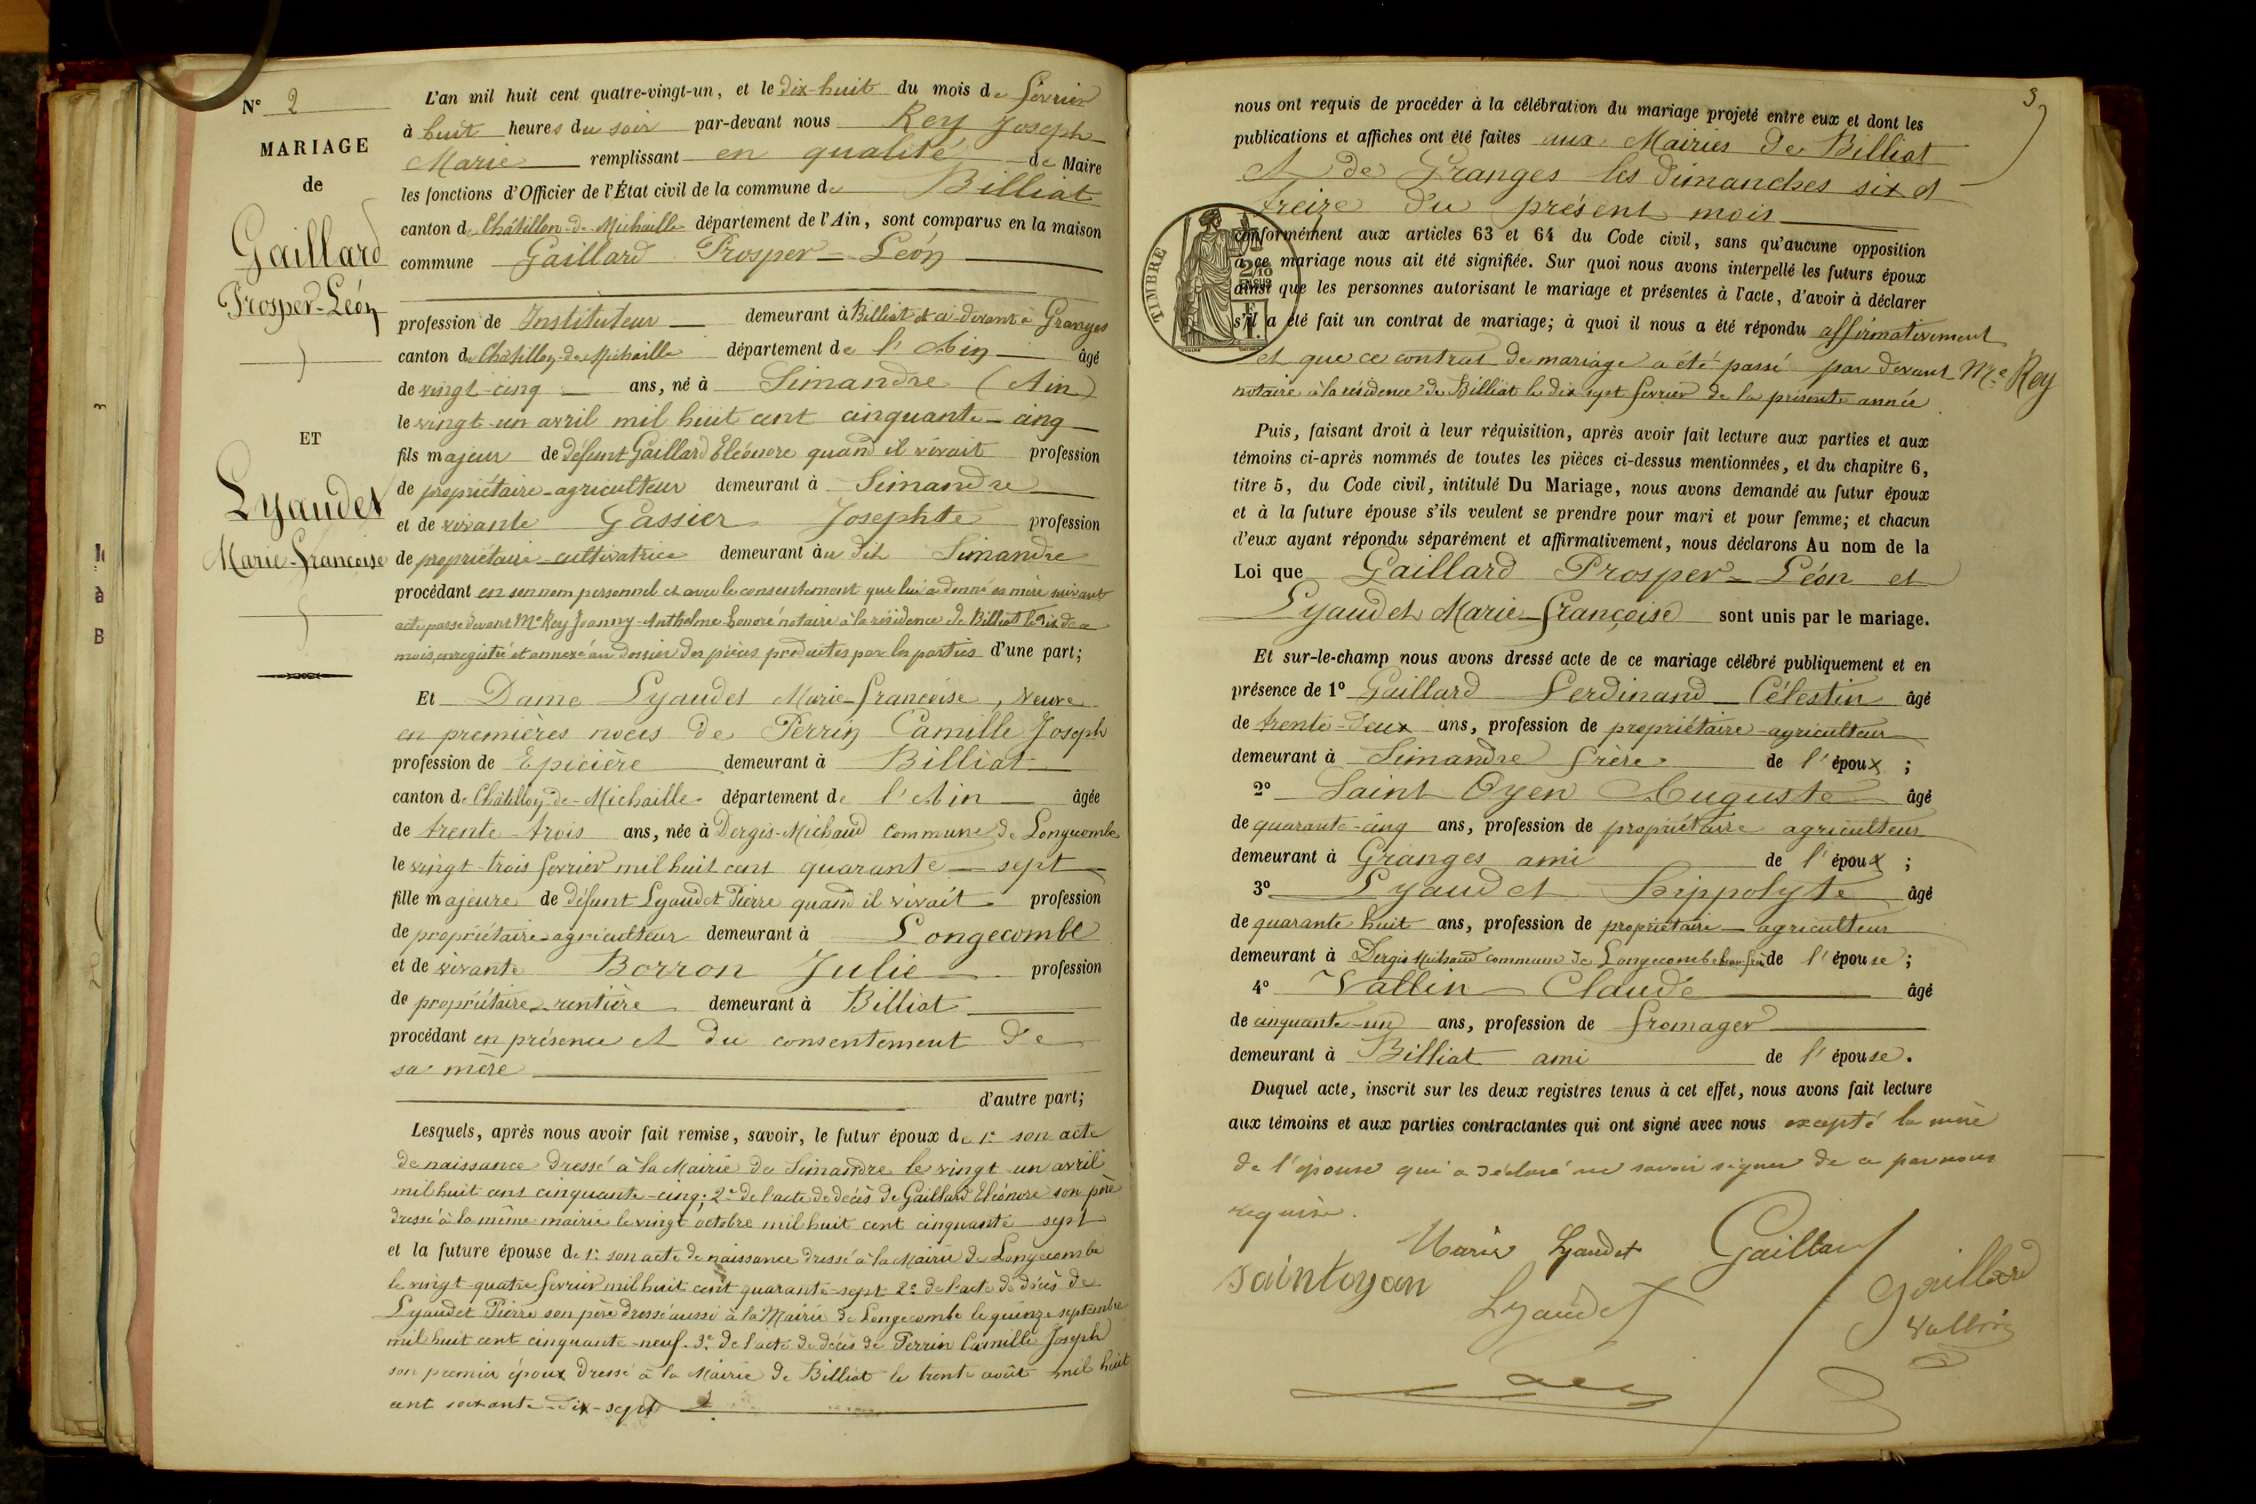 N° 2
MARIAGE
de
Gaillard
Prosper-Léon
ET
Lyaudet
Marie-Françoise
L'an mil huit cent quatre-vingt-un, et le dix-huit du mois de février
à huit heures du soir par-devant nous Rey Joseph
Marie remplissant en qualité de Maire
les fonctions d'Officier de l'État civil de la commune de Billiat
canton de Châtillon-de-Michaille département de l'Ain, sont comparus en la maison
commune Gaillard Prosper-Léon
profession de Instituteur demeurant à Billiat et ci-devant à Granges
canton de Châtillon-de-Michaille département de l'Ain âgé
de vingt-cinq ans, né à Simandre (Ain)
le vingt-un avril mil huit cent cinquante-cinq
fils majeur de défunt Gaillard Eléonore quand il vivait profession
de propriétaire-agriculteur demeurant à Simandre
et de vivante Gassier Josephte profession
de propriétaire-cultivatrice demeurant au dit Simandre
procédant en son nom personnel et avec le consentement que lui a donné sa mère suivant
acte passé devant Me Rey Joanny-Anthelme-Honoré notaire à la résidence de Billiat le dix de ce
mois, enregistré et annexé au dossier des pièces produites par les parties d'une part;
Et Dame Lyaudet Marie-Françoise, veuve
en premières noces de Perrin Camille Joseph
profession de Epicière demeurant à Billiat
canton de Châtillon-de-Michaille département de l'Ain âgée
de trente-trois ans, née à Dergis-Michaud commune de Longecombe
le vingt-trois février mil huit cent quarante-sept
fille majeure de défunt Lyaudet Pierre quand il vivait profession
de propriétaire-agriculteur demeurant à Longecombe
et de vivante Borron Julie profession
de propriétaire-rentière demeurant à Billiat
procédant en présence et du consentement de
sa mère
d'autre part;
Lesquels, après nous avoir fait remise, savoir, le futur époux de 1° son acte
de naissance dressé à la Mairie de Simandre le vingt-un avril
mil huit cent cinquante-cinq; 2° de l'acte de décès de Gaillard Eléonore son père
dressé à la même mairie le vingt octobre mil huit cent cinquante-sept
et la future épouse de 1° son acte de naissance dressé à la Mairie de Longecombe
le vingt-quatre février mil huit cent quarante-sept 2° de l'acte de décès de
Lyaudet Pierre son père dressé aussi à la Mairie de Longecombe le quinze septembre
mil huit cent cinquante-neuf. 3° de l'acte de décès de Perrin Camille Joseph
son premier époux dressé à la Mairie de Billiat le trente août mil huit
cent soixante-dix-sept
3
nous ont requis de procéder à la célébration du mariage projeté entre eux et dont les
publications et affiches ont été faites aux Mairies de Billiat
et de Granges les dimanches six et
treize du présent mois
TIMBRE
2/10
EN SUS
conformément aux articles 63 et 64 du Code civil, sans qu'aucune opposition
à ce mariage nous ait été signifiée. Sur quoi nous avons interpellé les futurs époux
ainsi que les personnes autorisant le mariage et présentes à l'acte, d'avoir à déclarer
s'il a été fait un contrat de mariage; à quoi il nous a été répondu affirmativement
et que ce contrat de mariage a été passé par devant Me Rey
notaire à la résidence de Billiat le dix sept février de la présente année
Puis, faisant droit à leur réquisition, après avoir fait lecture aux parties et aux
témoins ci-après nommés de toutes les pièces ci-dessus mentionnées, et du chapitre 6,
titre 5, du Code civil, intitulé Du Mariage, nous avons demandé au futur époux
et à la future épouse s'ils veulent se prendre pour mari et pour femme; et chacun
d'eux ayant répondu séparément et affirmativement, nous déclarons Au nom de la
Loi que Gaillard Prosper-Léon et
Lyaudet Marie-Françoise sont unis par le mariage.
Et sur-le-champ nous avons dressé acte de ce mariage célébré publiquement et en
présence de 1° Gaillard Ferdinand-Célestin âgé
de trente-deux ans, profession de propriétaire-agriculteur
demeurant à Simandre frère de l'époux;
2° Saint Oyen Auguste âgé
de quarante-cinq ans, profession de propriétaire agriculteur
demeurant à Granges ami de l'époux;
3° Lyaudet Hippolyte âgé
de quarante huit ans, profession de propriétaire-agriculteur
demeurant à Dergis Michaud commune de Longecombe de l'épouse;
4° Vallin Claude âgé
de cinquante-un ans, profession de fromager
demeurant à Billiat ami de l'épouse.
Duquel acte, inscrit sur les deux registres tenus à cet effet, nous avons fait lecture
aux témoins et aux parties contractantes qui ont signé avec nous excepté la mère
de l'épouse qui a déclaré ne savoir signer de ce par nous
requise.
Marie Lyaudet Gaillard
saintoyen Lyaudet Gaillard
Vallin